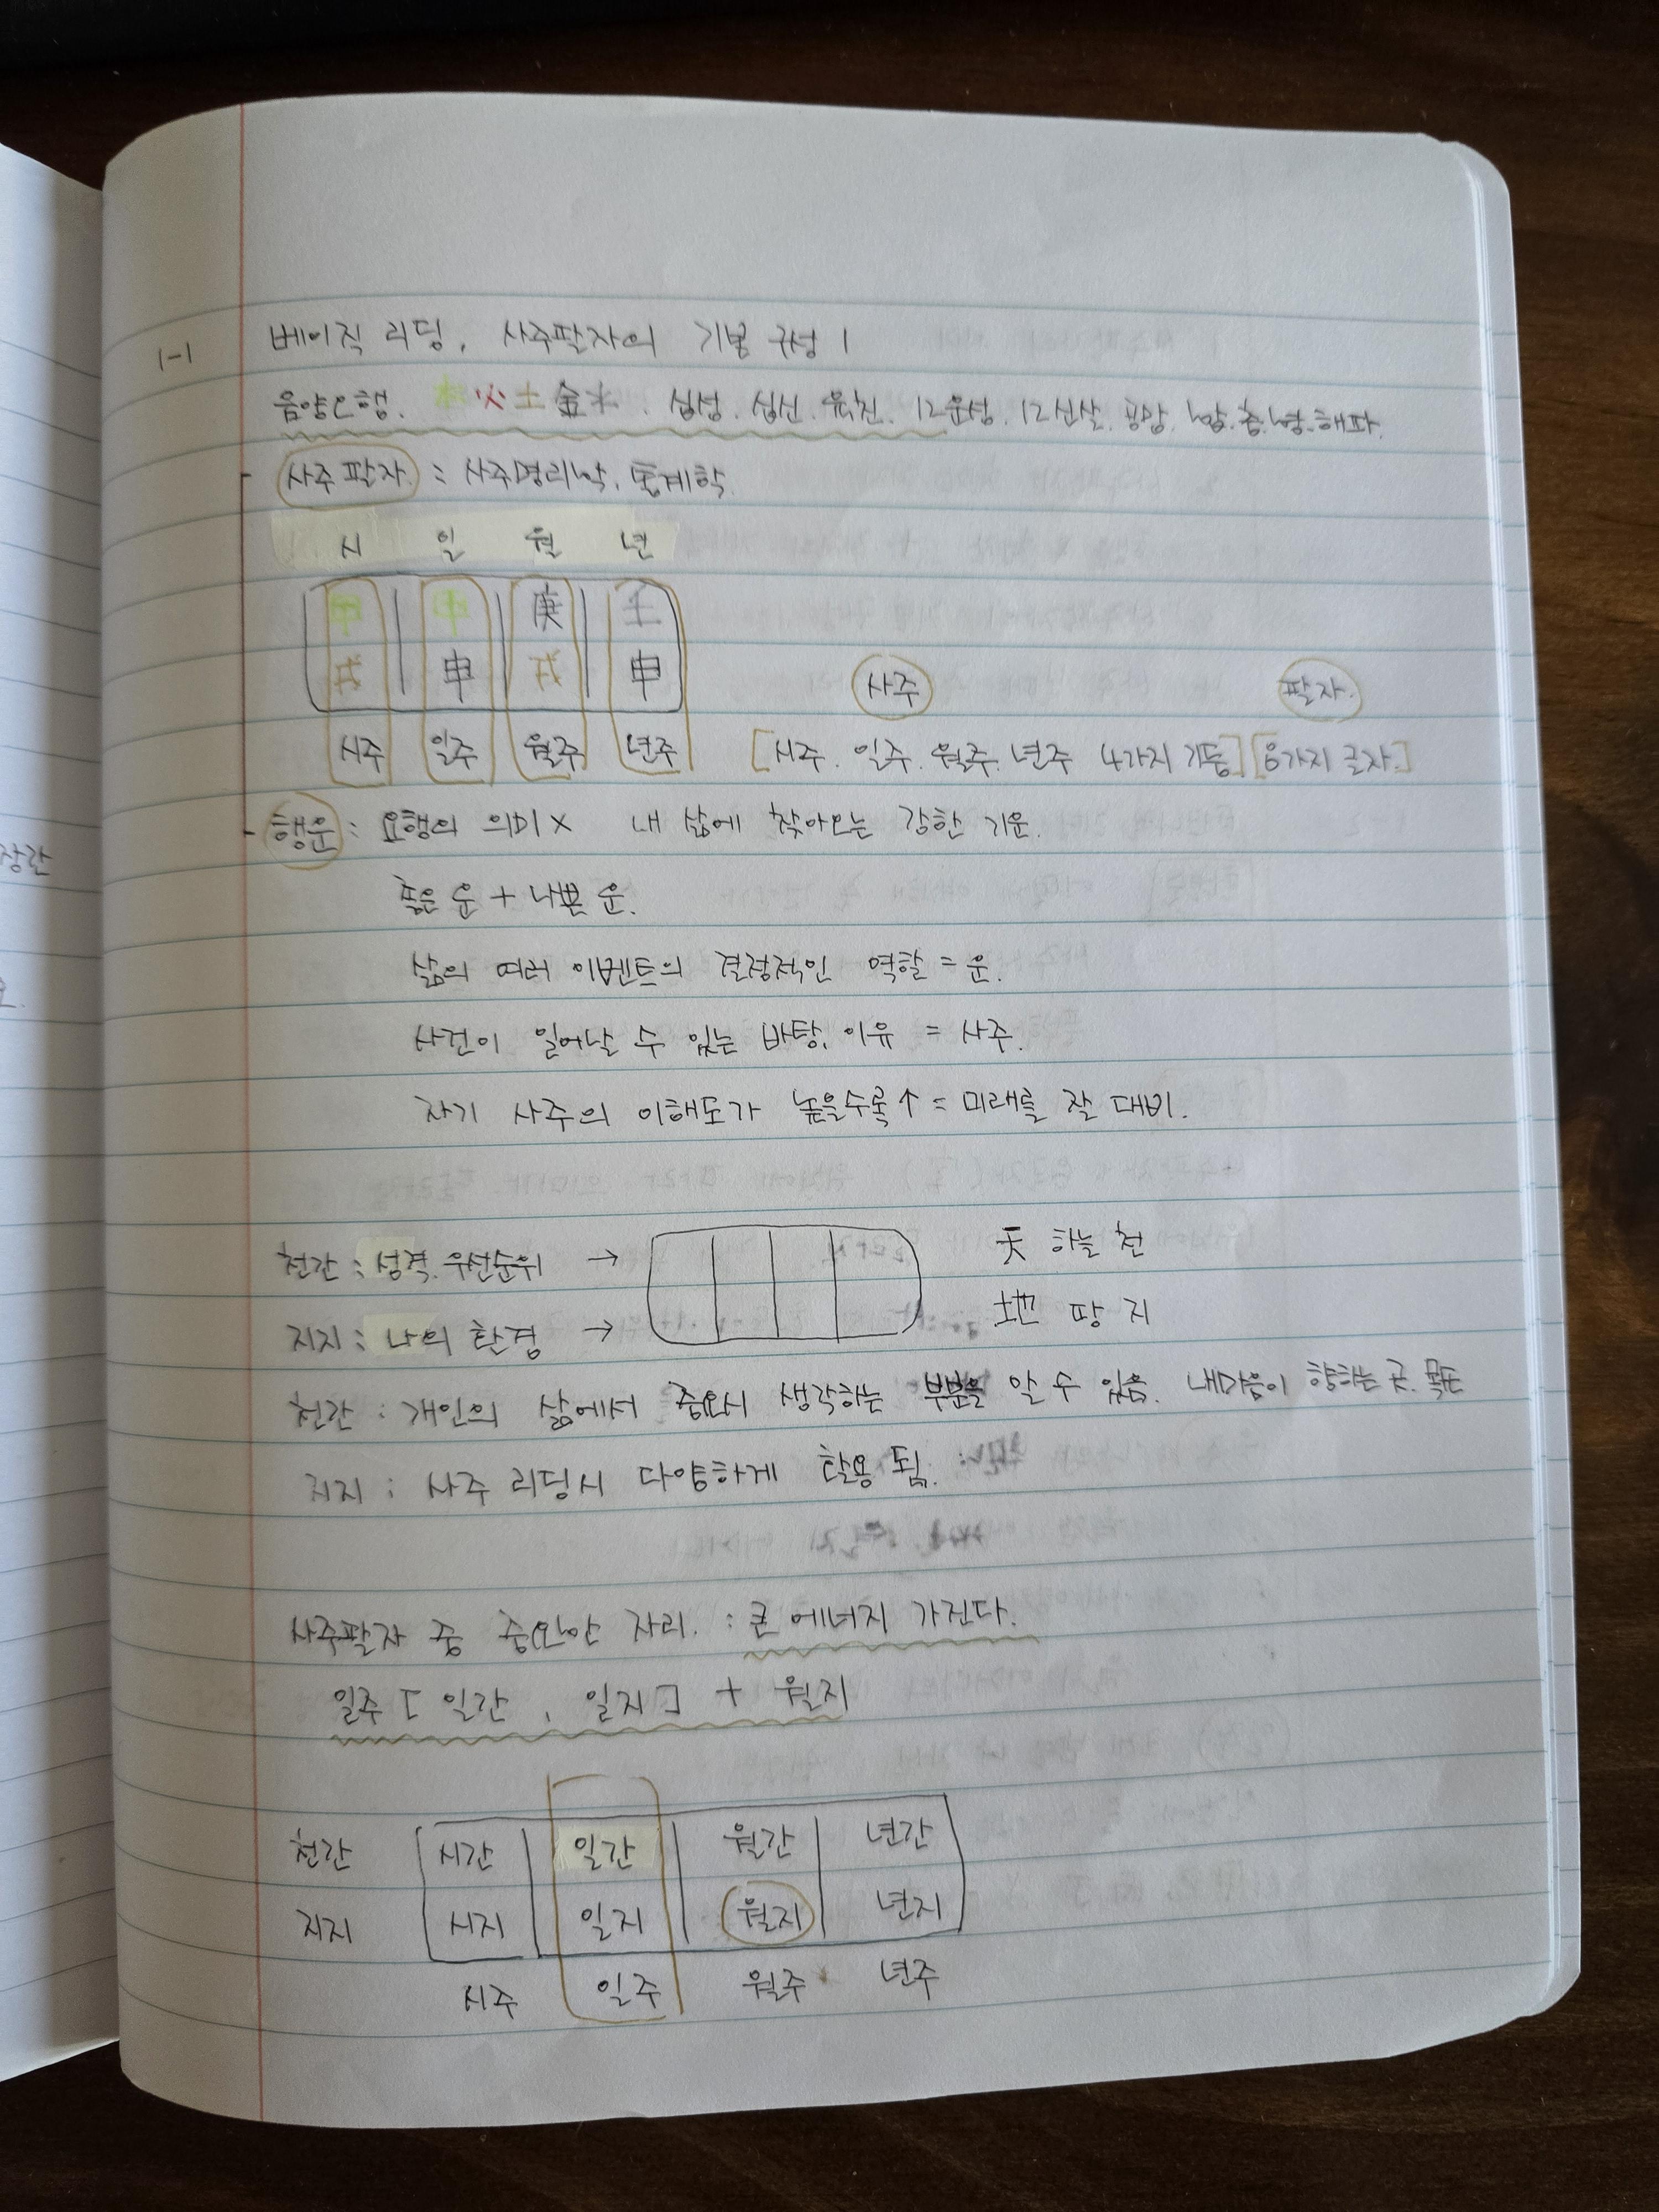 1-1 베이직 리딩, 사주팔자의 기본 구성 1
음양오행. 木火土金水. 십성. 십신. 육친. 12운성. 12신살. 공망. 합.충.형.해파.
사주팔자 : 사주명리학, 통계학.
시 일 월 년
甲 甲 庚 壬
戌 申 戌 申
사주 팔자.
시주 일주 월주 년주 [시주. 일주. 월주. 년주 4가지 기둥] [8가지 글자.]
행운 : 요행의 의미 X 내 삶에 찾아오는 강한 기운.
좋은 운 + 나쁜 운.
삶의 여러 이벤트의 결정적인 역할 = 운.
사건이 일어날 수 있는 바탕, 이유 = 사주.
자기 사주의 이해도가 높을수록 ↑ = 미래를 잘 대비.
천간 : 성격. 우선순위 → 天 하늘 천
지지 : 나의 환경 → 地 땅 지
천간 : 개인의 삶에서 중요시 생각하는 부분을 알 수 있음. 내마음이 향하는 곳.
지지 : 사주 리딩시 다양하게 활용 됨.
사주팔자 중 중요한 자리. : 큰 에너지 가진다.
일주 [ 일간, 일지 ] + 월지
천간 시간 일간 월간 년간
지지 시지 일지 월지 년지
시주 일주 월주 년주
장간